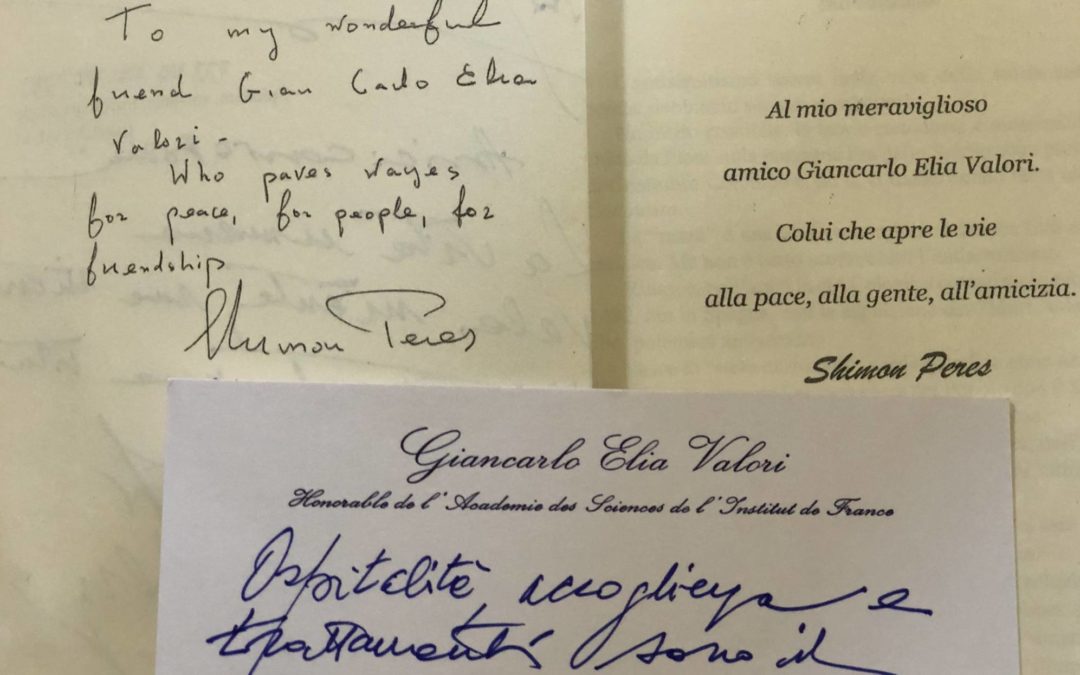 To my wonderful
friend Gian Carlo Elia
Valori -
Who paves wayes
for peace, for people, for
friendship
Shimon Peres
Al mio meraviglioso
amico Giancarlo Elia Valori.
Colui che apre le vie
alla pace, alla gente, all'amicizia.
Shimon Peres
Giancarlo Elia Valori
Honorable de l'Academie des Sciences de l'Institut de France
Ospitalità accoglienza e
trattamenti sono il